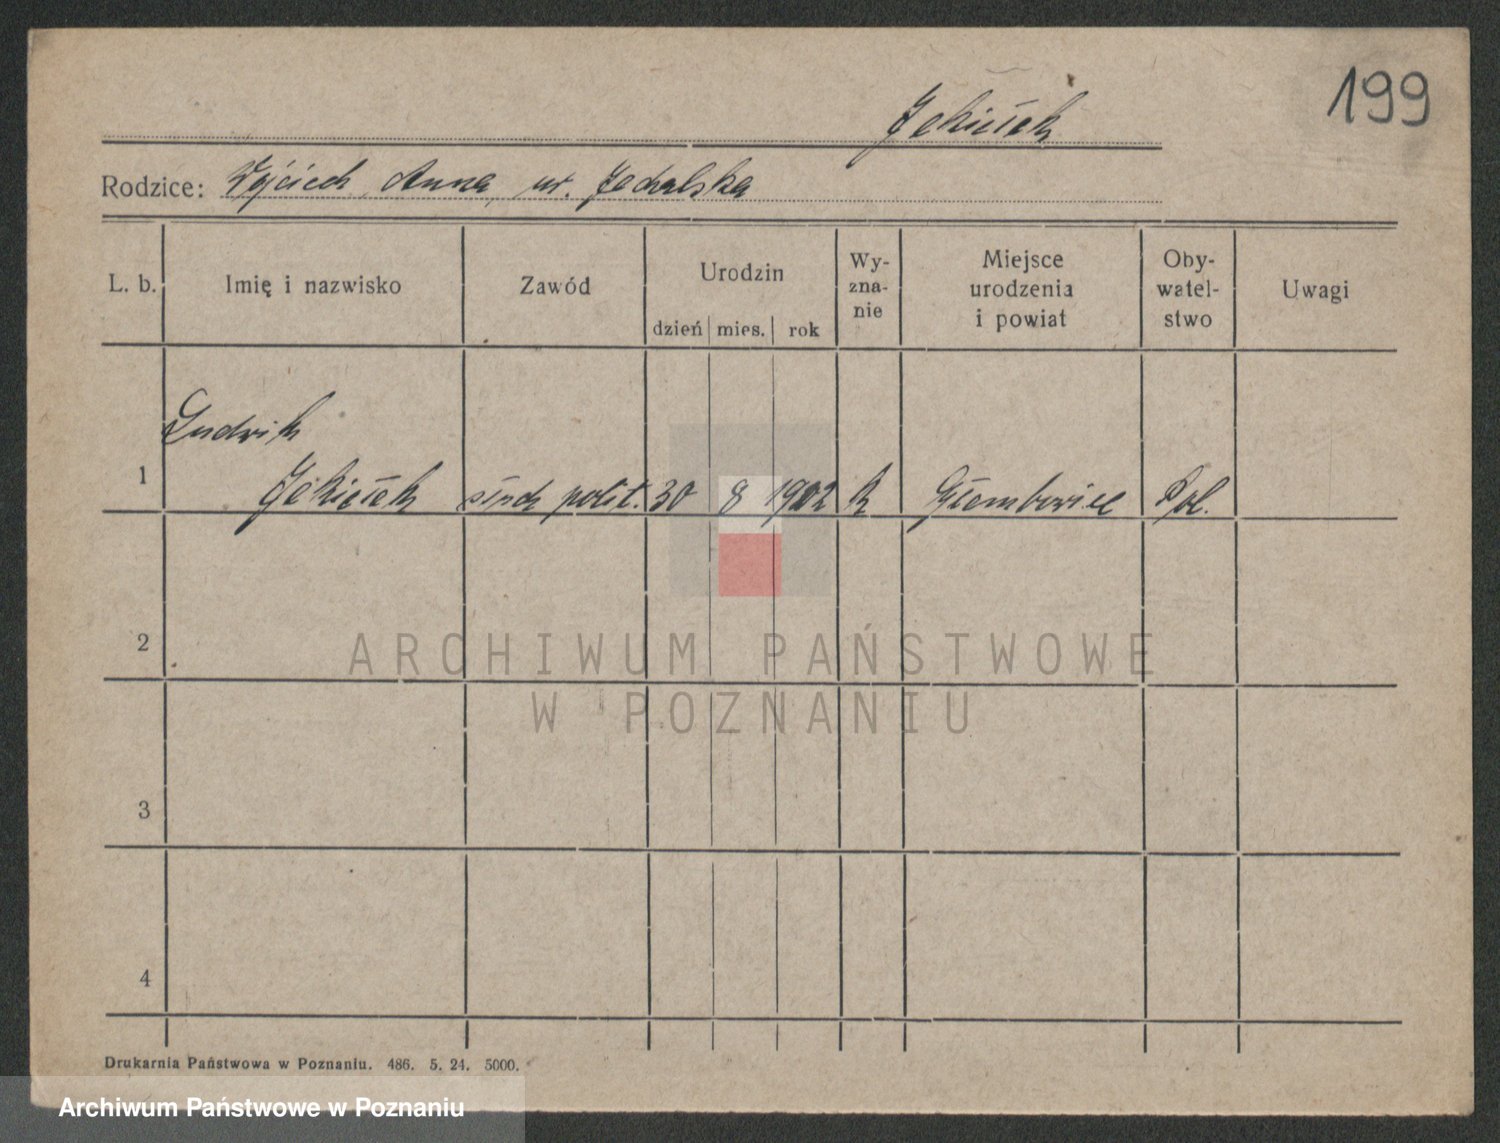 199
Jekiełek
Rodzice: Wojciech, Anna, ur. Jedralska
L. b.
Imię i nazwisko
Zawód
Urodzin
dzień mies. rok
Wy-
zna-
nie
Miejsce
urodzenia
i powiat
Oby-
watel-
stwo
Uwagi
Ludwik
1 Jekiełek słuch polit. 30 8 1902 k Głembowiec Pol.
2
3
4
ARCHIWUM PAŃSTWOWE
W POZNANIU
Drukarnia Państwowa w Poznaniu. 486. 5. 24. 5000.
Archiwum Państwowe w Poznaniu